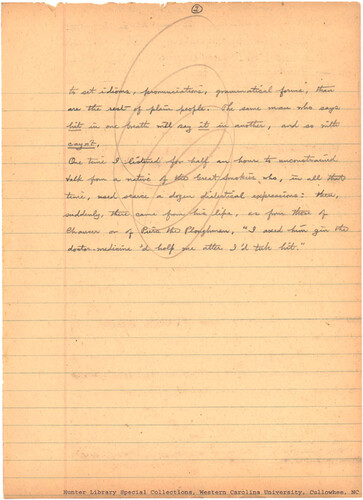 2
to set idioms, pronunciations, grammatical forms, than
are the rest of plain people. The same man who says
hit in one breath will say it in another, and so with
cayn't.
One time I listened for half an hour to unconstrained
talk from a native of the Great Smokies who, in all that
time, used scarce a dozen dialectical expressions: then,
suddenly, there came from his lips, as from those of
Chaucer or of Piers the Ploughman, "I axed him gin the
doctor-medicine 'd holp me atter I'd tuk hit."
Hunter Library Special Collections, Western Carolina University, Cullowhee, NC